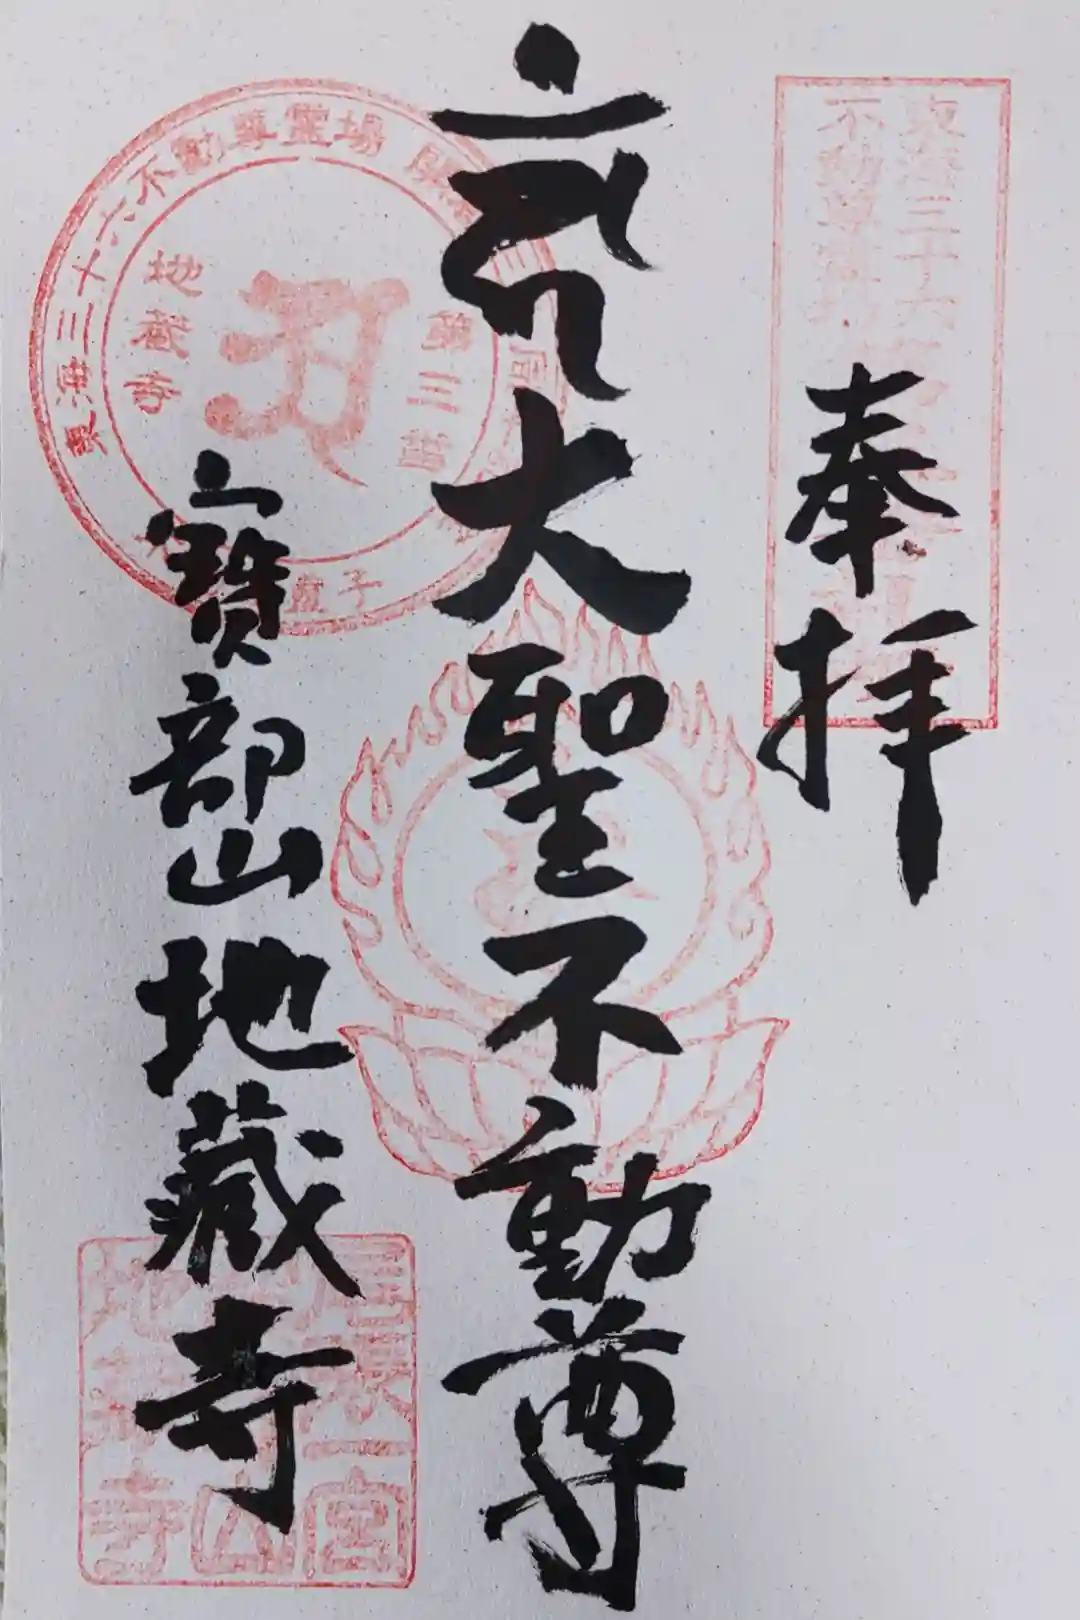 奉拝
大聖不動尊
寶部山地蔵寺
東海三十六
不動尊霊場
東海三十六不動尊霊場
第三番
地蔵寺